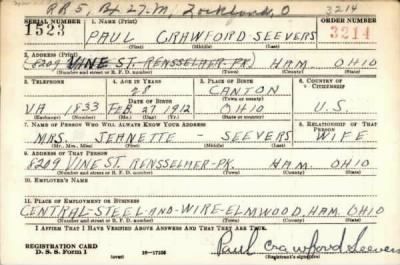 RR 5, Bx 27-M, Lockland, O 3214
SERIAL NUMBER 1. NAME (Print) ORDER NUMBER
1523 PAUL CRAWFORD SEEVERS 3214
(First) (Middle) (Last)
2. ADDRESS (Print)
(8209 VINE ST. RENSSELMER-PK.) HAM. OHIO
(Number and street or R. F. D. number) (Town) (County) (State)
3. TELEPHONE 4. AGE IN YEARS 5. PLACE OF BIRTH 6. COUNTRY OF CITIZENSHIP
28 CANTON
DATE OF BIRTH (Town or county)
VA 1833 FEB 27 1912 OHIO U.S.
(Exchange) (Number) (Mo.) (Day) (Yr.) (State or country)
7. NAME OF PERSON WHO WILL ALWAYS KNOW YOUR ADDRESS 8. RELATIONSHIP OF THAT PERSON
MRS. JEANETTE - SEEVERS WIFE
(Mr., Mrs., Miss) (First) (Middle) (Last)
9. ADDRESS OF THAT PERSON
8209 VINE ST. RENSSELMER-PK. HAM. OHIO
(Number and street or R. F. D. number) (Town) (County) (State)
10. EMPLOYER'S NAME
11. PLACE OF EMPLOYMENT OR BUSINESS
CENTRAL-STEEL AND-WIRE-ELMWOOD, HAM. OHIO
(Number and street or R. F. D. number) (Town) (County) (State)
I AFFIRM THAT I HAVE VERIFIED ABOVE ANSWERS AND THAT THEY ARE TRUE.
REGISTRATION CARD
D. S. S. Form 1 (over) 16-17105 Paul Crawford Seevers